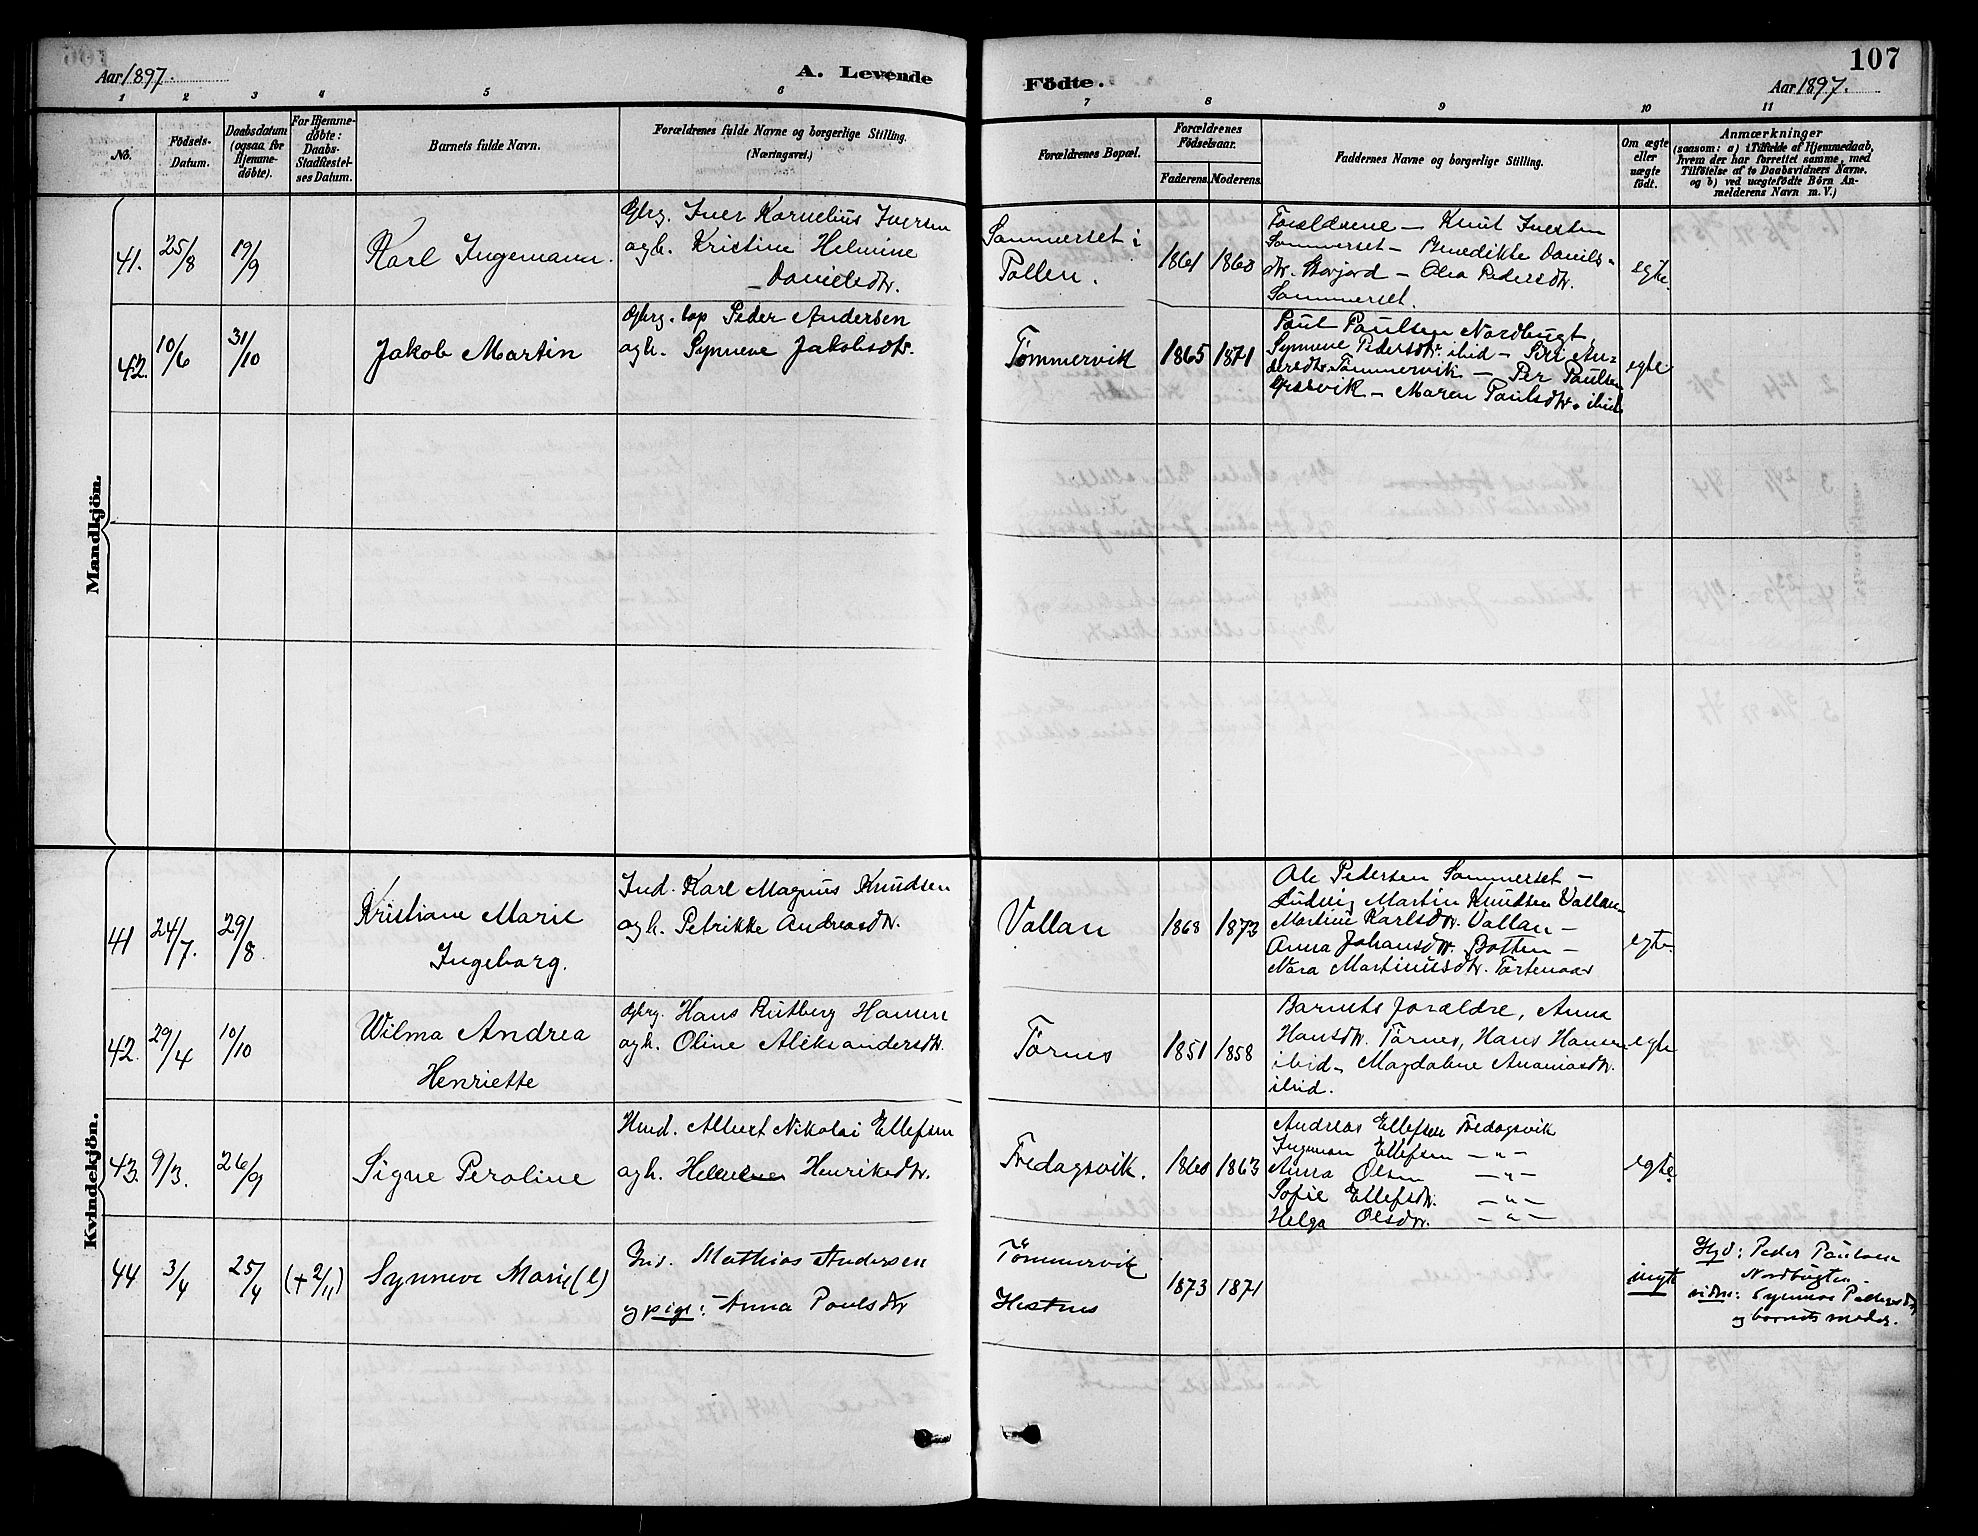 Aar 1897.
A. Levende
Födte.
107
Aar 1897.
1 2 3 4 5 6 7 8 9 10 11
No.
Födsels-
Datum.
Daabsdatum
(ogsaa for
Hjemme-
døbte).
For Hjemme-
døbte:
Daabs-
Stadfæstel-
ses Datum.
Barnets fulde Navn.
Forældrenes fulde Navne og borgerlige Stilling.
(Næringsvei.)
Forældrenes Bopæl.
Forældrenes
Födselsaar.
Faderens. Moderens.
Faddernes Navne og borgerlige Stilling.
Om ægte
eller
uægte
födt.
Anmærkninger
(saasom: a) i Tilfælde af Hjemmedaab,
hvem der har forrettet samme, med
Tilföielse af to Daabsvidners Navne.
og b) ved uægtefödte Börn An-
melderens Navn m. V.)
Mandkjön.
41. 25/8 19/9 Karl Ingemann.
Gbrg. Iver Kornelius Iversen
agh. Kristine Helmine
Danielsdtr.
Sommerset i
Pollen.
1861 1860
Forældrene – Knut Iversen
Sommerset – Benedikte Daniels-
dtr. Storjord – Olea Pedersdtr.
Sommerset.
egte.
42. 10/6 31/10 Jakob Martin
Gbrg. lap Peder Andersen
agh. Synneve Jakobsdtr.
Tømmervik 1865 1871
Paul Paulsen Nordbugt,
Synneve Pedersdtr. ibid – Siri An-
dersdtr. Tømmervik – Per Paulsen
– Maren Paulsdtr. ibid
egte
Kvindekjön.
41 24/7. 29/8. Kristiane Marie
Ingeborg.
Ind. Karl Magnus Knudsen
agh. Petrikke Andreasdtr.
Vallan 1868 1873
Ole Pedersen Sommerset –
Ludvig Martin Knudsen Vallan –
Martine Karlsdtr. Vallan –
Anna Johansdtr. Botten –
Nora Martinusdtr. Tortenaas
egte.
42. 29/4 10/10 Wilma Andrea
Henriette
Gbrg. Hans Rutberg Hansen
agh. Oline Aleksandersdtr.
Tørnes 1851 1858
Barnets forældre, Anna
Hansdtr. Tørnes, Hans Hansen
ibid – Magdalene Ananiasdtr.
ibid.
egte
43. 9/3. 26/9 Signe Peroline
Hmd. Albert Nikolai Ellefsen
agh. Helene Henriksdtr.
Fredagsvik. 1860 1863
Andreas Ellefsen Fredagsvik
Ingeman Ellefsen – " –
Anna Olsen – " –
Sofie Ellefsdtr. – " –
Helga Olsdtr. – " –
egte.
44 3/4 25/4 (+ 2/11) Synneve Marie (l)
Ind. Mathias Andersen
og pige: Anna Poulsdtr
Tømmervik
Hestnes
1873 1871
uegte
Hjd: Peder Paulsen
Nordbugten –
vidne: Synneve Pedersdtr
og barnets moder.